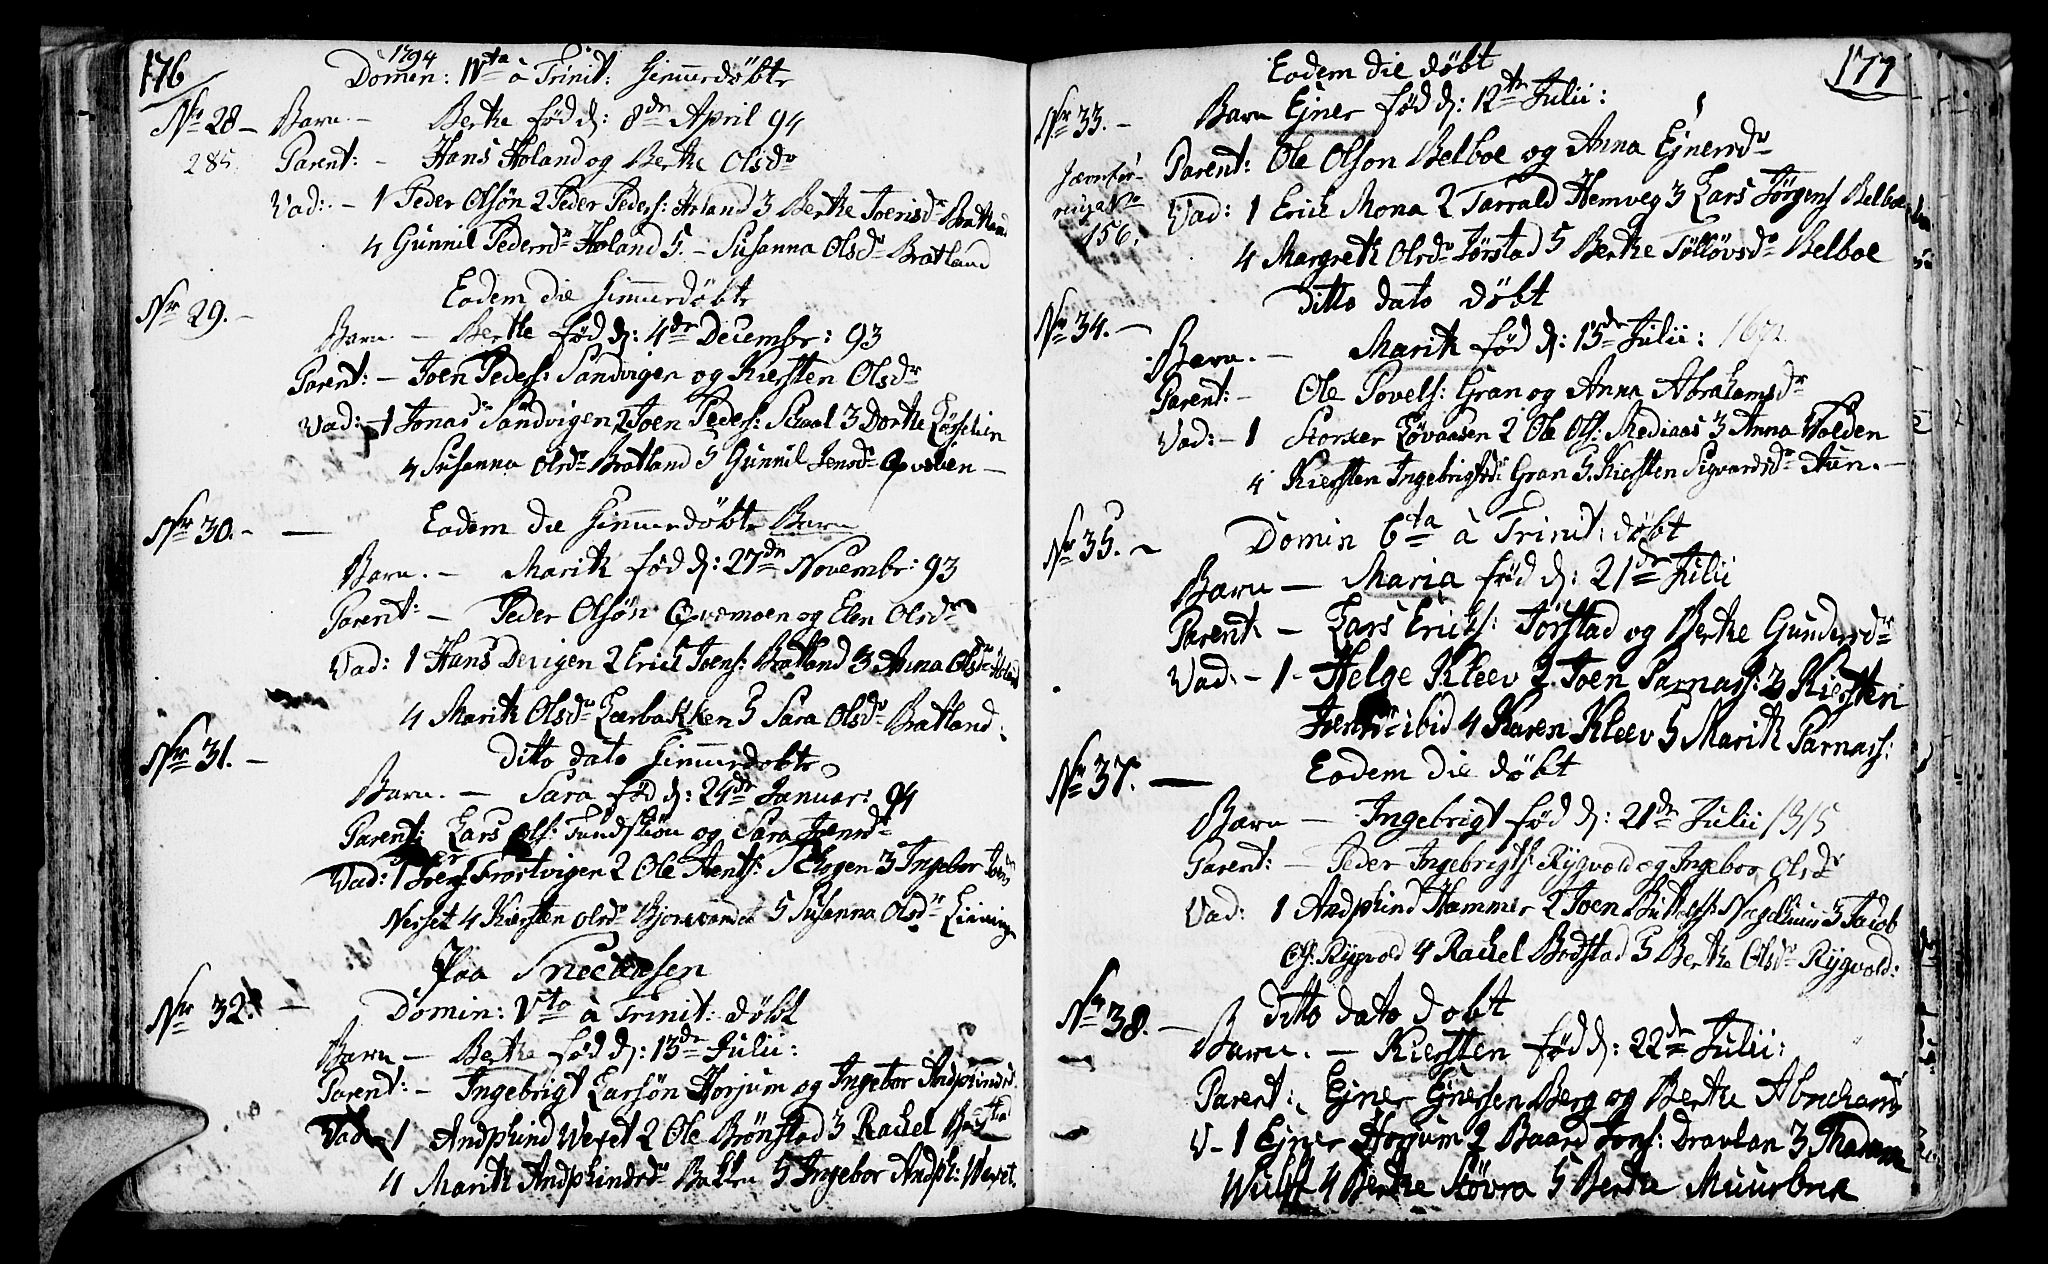 176
1794
Domin: IVta à Trinit: Himmerdøbte
No 28 – Barn. – Berte fød d: 8de April 94
285. Parent: – Hans Holand og Berte Olsdr
Vad: – 1 Peder Olsøn 2 Peder Peders: Holand 3 Berte Joensdr Bratland
4 Gunnil Pedersdr Holand 5. – Susanna Olsdr Bratland
Eodem die Himmerdøbte
Nr 29. –
Barn. – Berthe fød d: 4de Decembr: 93
Parent: – Joen Peders: Sandvigen og Kiersten Olsdr
Vad: – 1 Jonas Sandvigen 2 Joen Peders: 3 Dorthe
4 Susanna Olsdr Bratland 5 Gunnil Jensdr –
Nr 30. – – Eodem die Himmerdøbte Barn
Barn. – Marit fød d: 27de Novembr: 93
Parent: – Peder Olsøn Qvemoen og Elen Olsdr
Vad: 1 Hans Devigen 2 Erick Joens: Bratland 3 Anna Olsdr Holand
4 Marit Olsdr Lærbakken 5 Sara Olsdr Bratland:
Nr 31. – Ditto dato Himmerdøbte
Barn. – Sara fød d: 24de Januar: 94
Parent: Lars Ols: og Sara Joensdr
Vad: 1 Frostvigen 2 Ole Arents: 3 Ingebor
4 Kiersten Olsdr 5 Susanna Olsdr
Paa Sneaasen
Nr 32. – Domin: Vta à Trinit: døbt
Barn – Berte fød d: 13de Julii:
Parent: – Ingebrigt Larsøn Horjum og Ingebor Andphindsd
Vad 1 Andphind Weset 2 Ole Brønstad 3 Rachel
4 Marit Andphindsdr Bakken 5 Ingebor Andph: Weset.
177
Eodem die døbt
Nr 33. – Barn Ejner fød d: 12te Julii:
Jævnfør
156. Parent: Ole Olson Belboe og Anna Ejnersdr
Vad: 1 Erick Mona 2 Tarrald Hemveg 3 Lars Jørgens Belboe
4 Margrete Olsdr Jørstad 5 Berte Tølløvsdr Belboe
Ditto dato døbt
Nr 34. –
Barn. – Marit fød d: 15de Julii: 1672
Parent: – Ole Povels: Gran og Anna Abrahamsdr
Vad: – 1 Storker Løvaasen 2 Ole Ols: Mediaas 3 Anna Wolden
4 Kiersten Ingebrigtsd: Gran 5 Kiersten Sigvardsdr Aun. –
Nr 35. – Domin 6ta à Trinit: døbt
Barn – Maria fød d: 21de Julii
Parent: – Lars Ericks: Jørstad og Berte Gundersdr
Vad. – 1 – Helge Kleev 2 Joen Parnass: 3 Kiersten
ibid 4 Karen Kleev 5 Marit Parnass:
Nr 37. – Eodem die døbt
Barn – Ingebrigt fød d: 21de Julii 1315
Parent: – Peder Ingebrigts: Rygvold og Ingebor Olsdr
Vad: 1 Andphind Hammer 2 Joen 3 Jacob
Ols: Rygvold 4 Rachel Bodstad 5 Berthe Olsdr Rygvold:
Nr 38. – Ditto dato døbt
Barn. – Kiersten fød d: 22de Julii:
Parent: Ejner Ejnersen Berg og Berte Abrahams
V – 1 Ejner Horjum 2 Baard Jons: Dravlan 3 Madame
Wulff 4 Berthe Støvra 5 Berthe Muurbrek